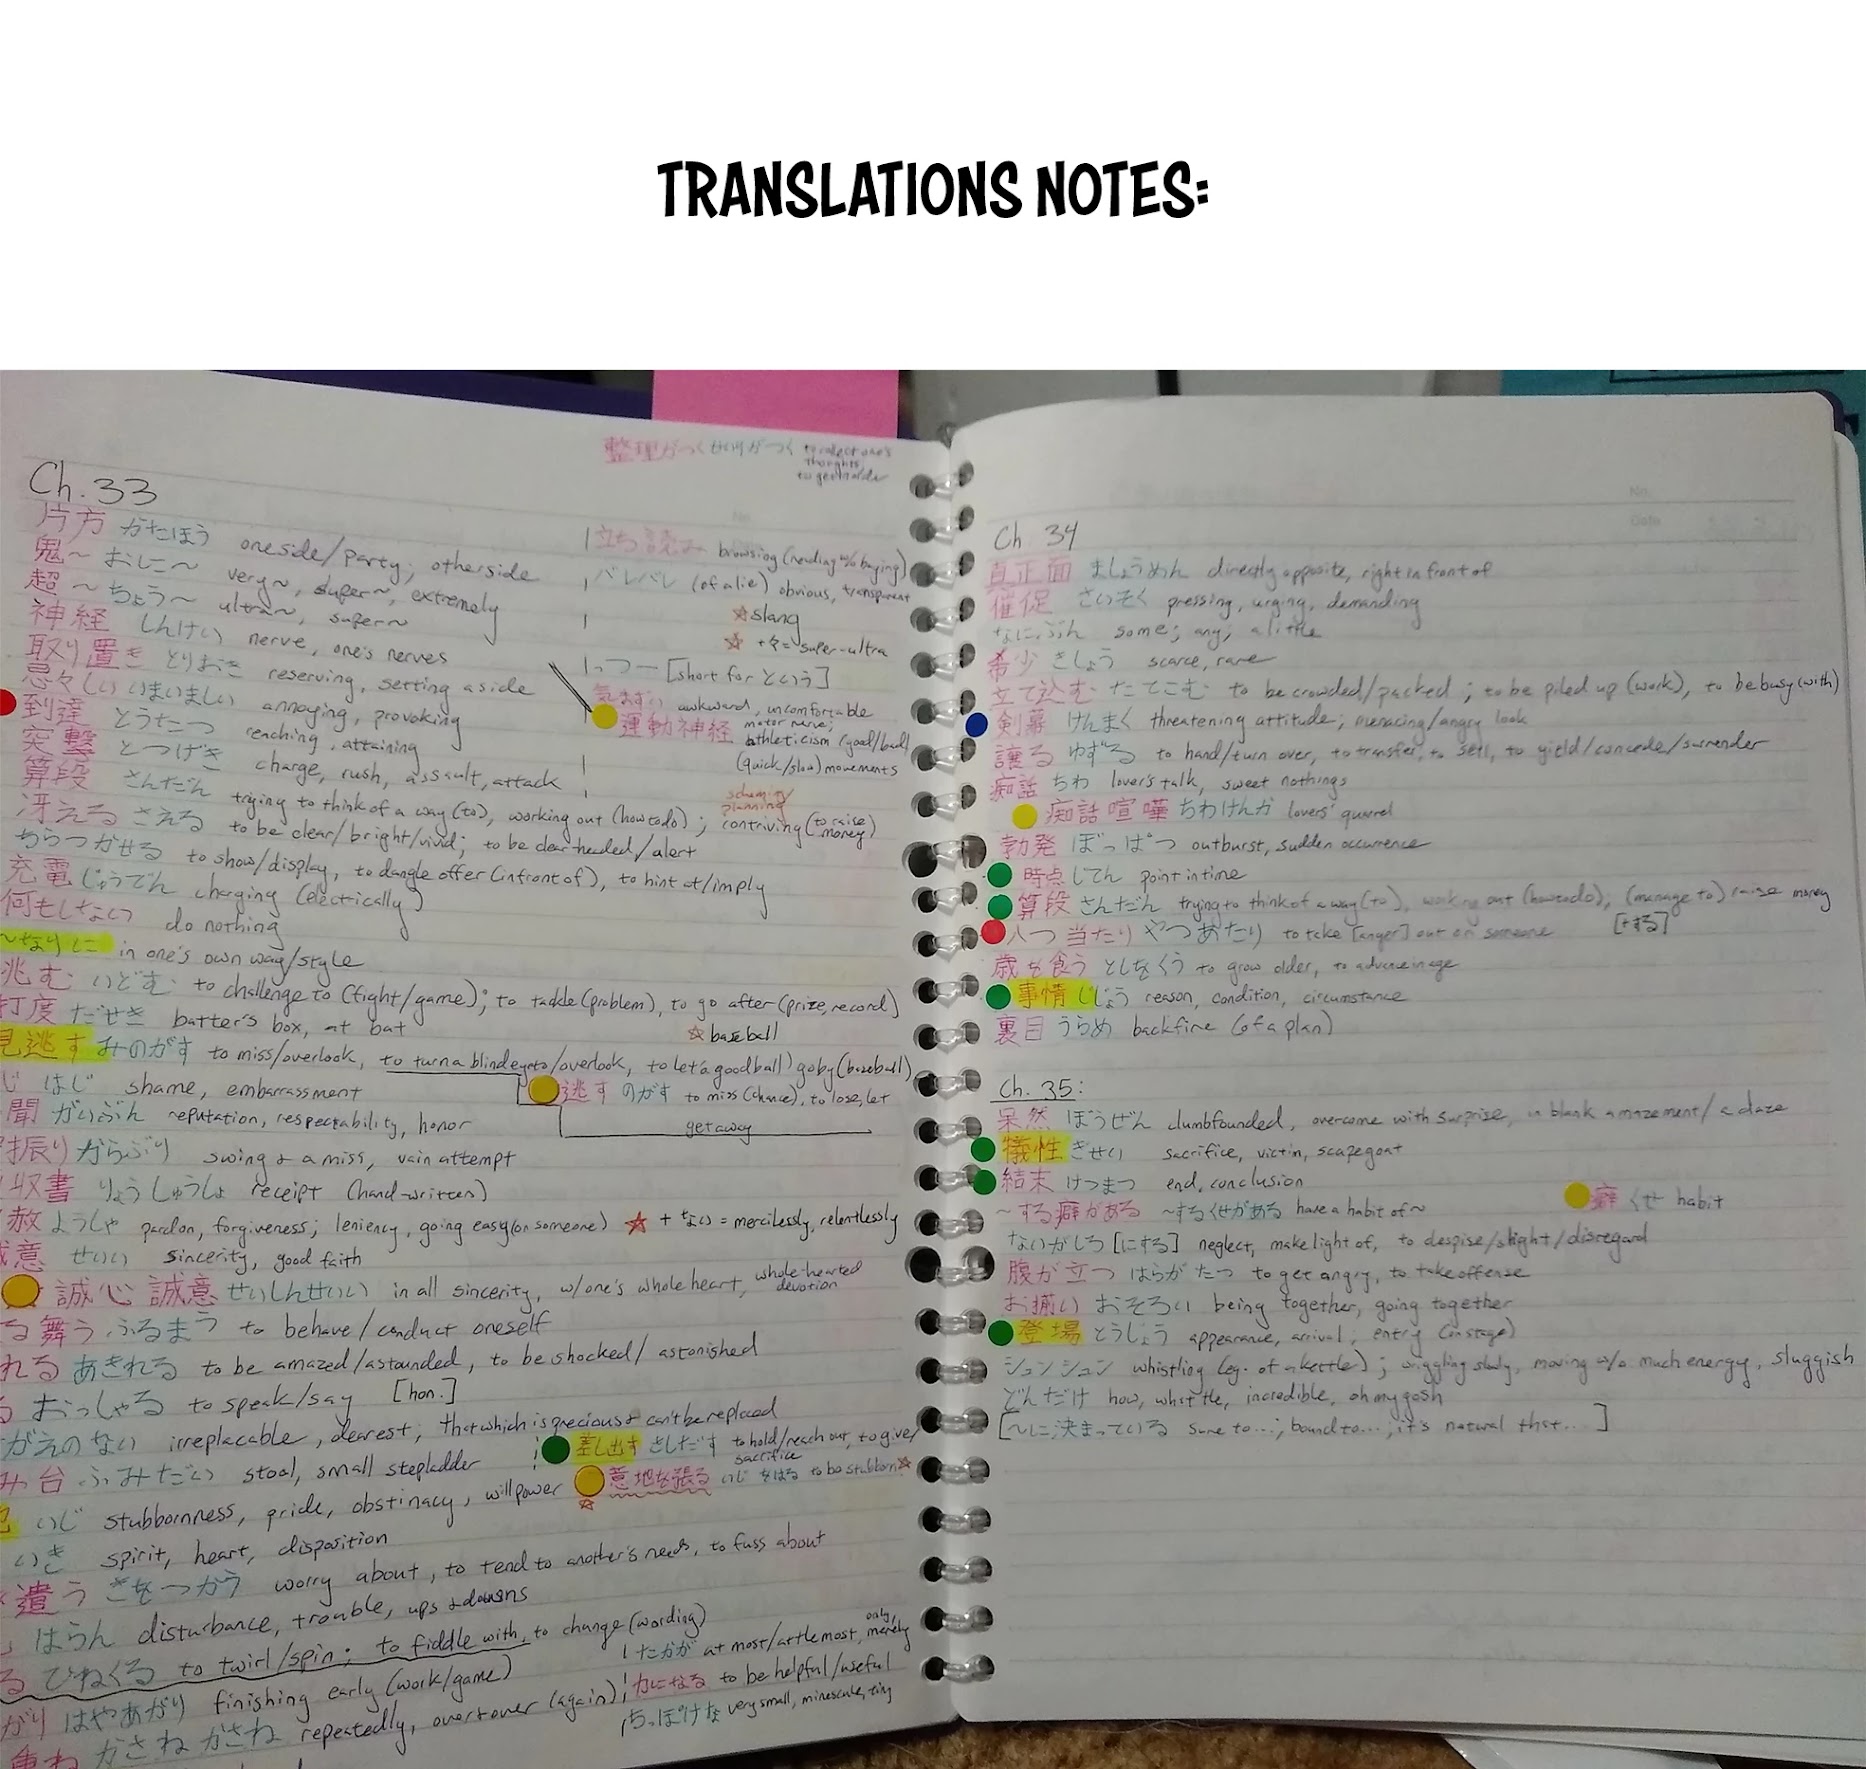 TRANSLATIONS NOTES:
整理がつく せいりがつく to collect one's thoughts, to get in order
Ch. 33
片方 かたほう one side/party; other side
鬼〜 おに〜 very~, super~, extremely
超〜 ちょう〜 ultra~, super~
神経 しんけい nerve, one's nerves
取り置き とりおき reserving, setting aside
忌々しい いまいましい annoying, provoking
到達 とうたつ reaching, attaining
突撃 とつげき charge, rush, assault, attack
算段 さんだん trying to think of a way (to), working out (how to do); contriving (to raise money) scheming/planning
冴える さえる to be clear/bright/vivid; to be clear-headed/alert
ちらつかせる to show/display, to dangle offer (in front of), to hint at/imply
充電 じゅうでん charging (electrically)
何もしない do nothing
〜なりに in one's own way/style
挑む いどむ to challenge to (fight/game); to tackle (problem), to go after (prize, record)
打席 だせき batter's box, at bat ☆baseball
見逃す みのがす to miss/overlook, to turn a blind eye to/overlook, to let (a good ball) go by (baseball)
じ はじ shame, embarrassment
逃す のがす to miss (chance), to lose, let get away
聞 がいぶん reputation, respectability, honor
振り からぶり swing & a miss, vain attempt
収書 りょうしゅうしょ receipt (hand-written)
赦 ようしゃ pardon, forgiveness; leniency, going easy (on someone) ☆ + ない = mercilessly, relentlessly
誠意 せいい sincerity, good faith
誠心誠意 せいしんせいい in all sincerity, w/one's whole heart, whole-hearted devotion
る舞う ふるまう to behave/conduct oneself
れる あきれる to be amazed/astounded, to be shocked/astonished
る おっしゃる to speak/say [hon.]
がえのない irreplacable, dearest; that which is precious & can't be replaced
差し出す さしだす to hold/reach out, to give/sacrifice
み台 ふみだい stool, small stepladder
意地を張る いじをはる to be stubborn ☆
いじ stubbornness, pride, obstinacy, willpower
いき spirit, heart, disposition
遣う きをつかう worry about, to tend to another's needs, to fuss about
はらん disturbance, trouble, ups & downs
る ひねくる to twirl/spin; to fiddle with, to change (wording)
がり はやあがり finishing early (work/game)
重ね かさねかさね repeatedly, over & over (again)
立ち読み browsing (reading w/o buying)
バレバレ (of a lie) obvious, transparent
☆slang
っつー [short for という]
気まずい awkward, uncomfortable
運動神経 motor nerve; athleticism (good/bad) (quick/slow) movements
たかが at most/at the most, only, merely
力になる to be helpful/useful
ちっぽけな very small, minescule, tiny
Ch. 34
真正面 ましょうめん directly opposite, right in front of
催促 さいそく pressing, urging, demanding
なにぶん some; any; a little
希少 きしょう scarce, rare
立て込む たてこむ to be crowded/packed; to be piled up (work), to be busy (with)
剣幕 けんまく threatening attitude; menacing/angry look
譲る ゆずる to hand/turn over, to transfer, to sell, to yield/concede/surrender
痴話 ちわ lover's talk, sweet nothings
痴話喧嘩 ちわけんか lovers' quarrel
勃発 ぼっぱつ outburst, sudden occurrence
時点 してん point in time
算段 さんだん trying to think of a way (to), working out (how to do), (manage to) raise money [+する]
八つ当たり やつあたり to take [anger] out on someone
歳を食う としをくう to grow older, to advance in age
事情 じじょう reason, condition, circumstance
裏目 うらめ backfire (of a plan)
Ch. 35:
呆然 ぼうぜん dumbfounded, overcome with surprise, in blank amazement/a daze
犠牲 ぎせい sacrifice, victim, scapegoat
結末 けつまつ end, conclusion
〜する癖がある 〜するくせがある have a habit of~
癖 くせ habit
ないがしろ [にする] neglect, make light of, to despise/slight/disregard
腹が立つ はらがたつ to get angry, to take offense
お揃い おそろい being together, going together
登場 とうじょう appearance, arrival; entry (on stage)
シュンシュン whistling (eg. of a kettle); wiggling slowly, moving w/o much energy, sluggish
どんだけ how, what the, incredible, oh my gosh
[〜に決まっている sure to...; bound to...; it's natural that...]